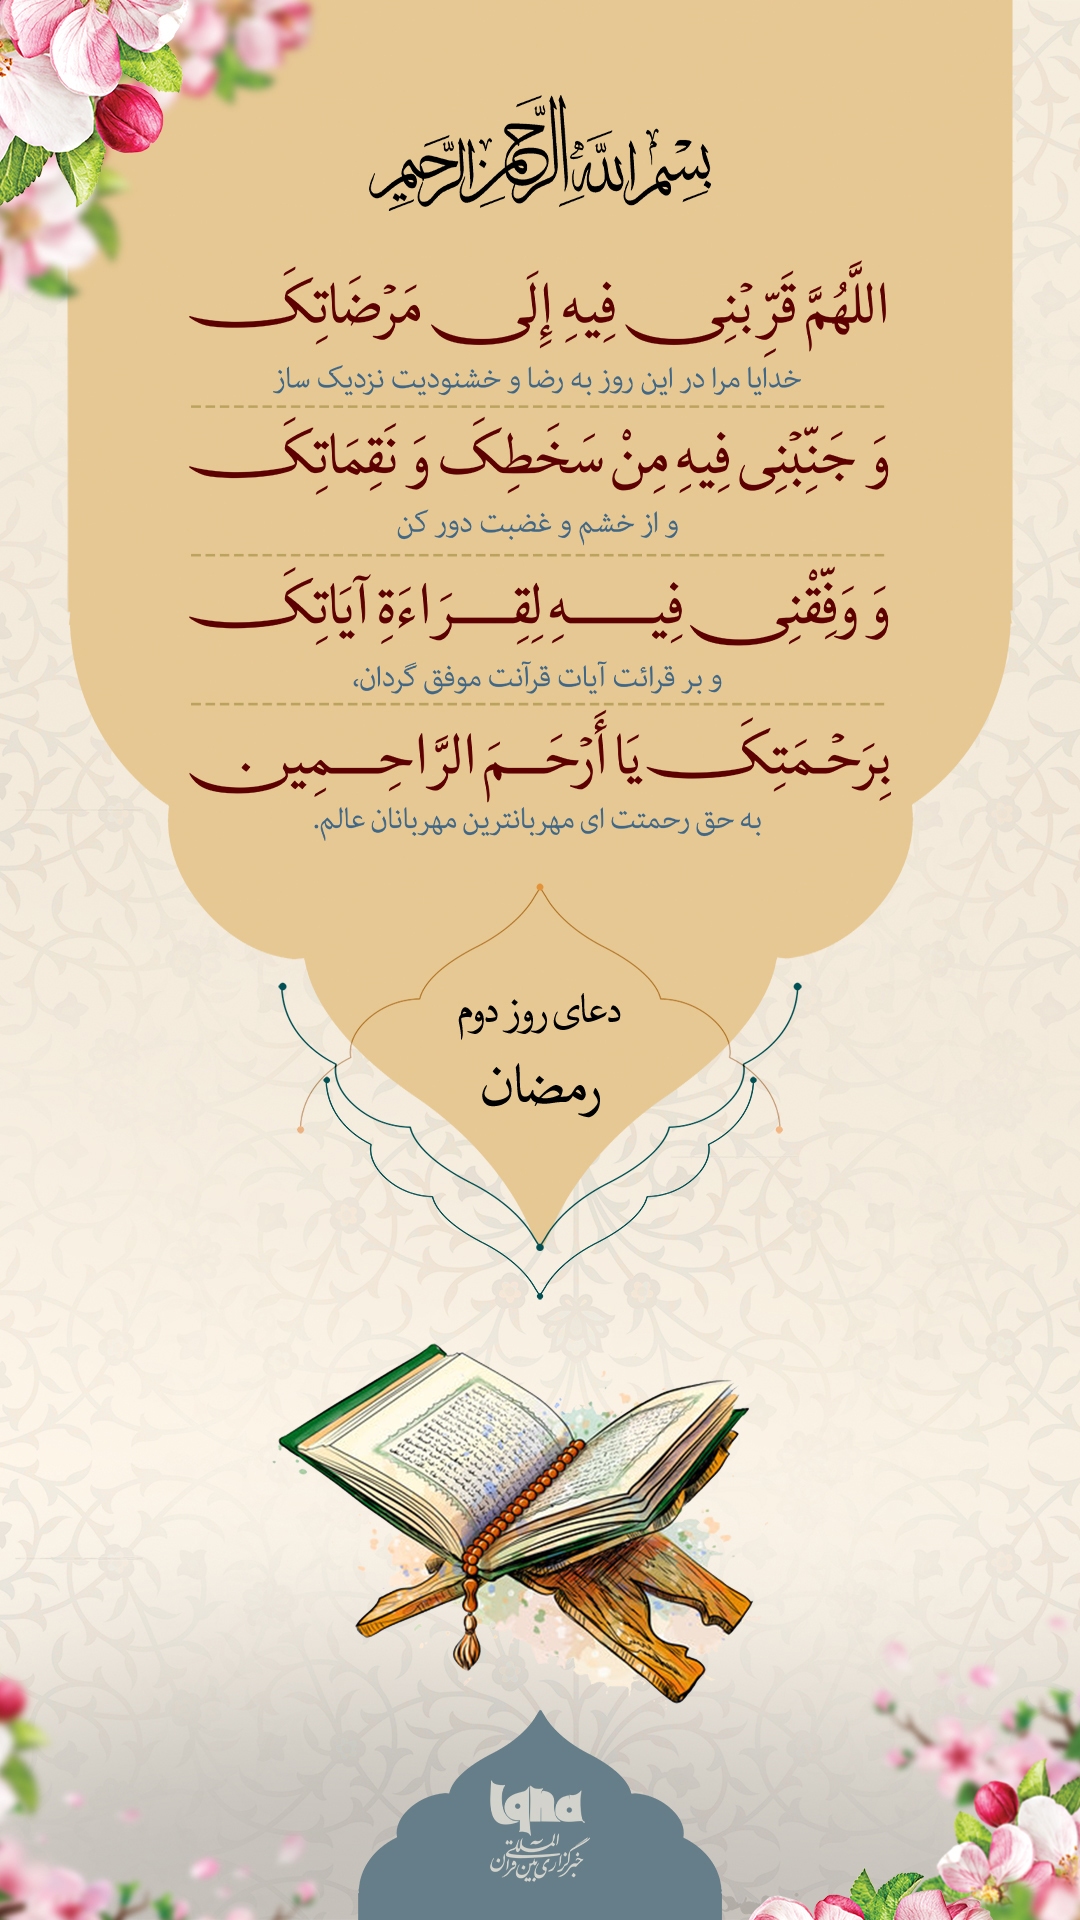 بِسْمِ اللَّهِ الرَّحْمَنِ الرَّحِيمِ
اللَّهُمَّ قَرِّبْنِی فِیهِ إِلَی مَرْضَاتِکَ
خدایا مرا در این روز به رضا و خشنودیت نزدیک ساز
وَ جَنِّبْنِی فِیهِ مِنْ سَخَطِکَ وَ نَقِمَاتِکَ
و از خشم و غضبت دور کن
وَ وَفِّقْنِی فِیهِ لِقِرَاءَةِ آیَاتِکَ
و بر قرائت آیات قرآنت موفق گردان،
بِرَحْمَتِکَ یَا أَرْحَمَ الرَّاحِمِین
به حق رحمتت ای مهربانترین مهربانان عالم.
دعای روز دوم
رمضان
Iqna
خبرگزاری بین المللی قرآن